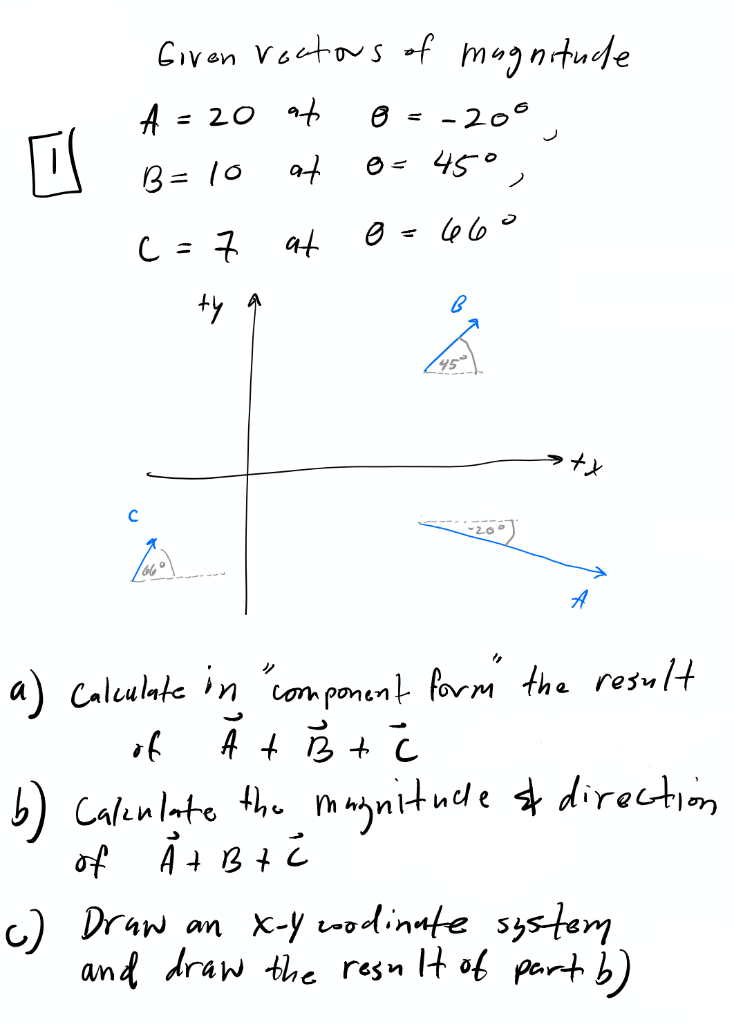 Given vectors of magnitude
A = 20 at θ = -20°,
1
B = 10 at θ = 45°,
C = 7 at θ = 66°
+y
B
45°
+x
C
-20°
66°
A
a) Calculate in "component form" the result
of A⃗ + B⃗ + C⃗
b) Calculate the magnitude & direction
of A⃗ + B + C⃗
c) Draw an x-y coodinate system
and draw the result of part b)